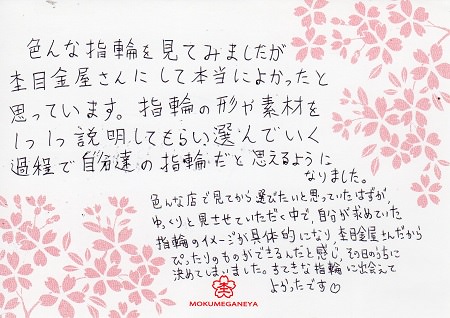 色んな指輪を見てみましたが
杢目金屋さんにして本当によかったと
思っています。指輪の形や素材を
1つ1つ説明してもらい選んでいく
過程で自分達の指輪だと思えるように
なりました。
色んな店で見てから選びたいと思っていたはずが、
ゆっくりと見させていただく中で、自分が求めていた
指輪のイメージが具体的になり、杢目金屋さんだから
ぴったりのものができるんだと感じ、その日のうちに
決めてしまいました。すてきな指輪に出会えて
よかったです♡
MOKUMEGANEYA